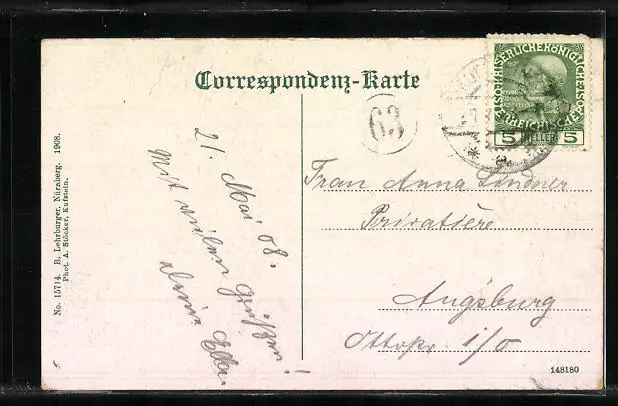 Correspondenz-Karte
63
5 HELLER 5
21. Mai 08.
Mit vielen Grüßen!
deine Ella.
Frau Anna Lindner
Privatière
Augsburg
Ottostr. 1/0
No. 15714. B. Lehrburger, Nürnberg. 1908.
Phot. A. Stöcker, Kufstein.
148180